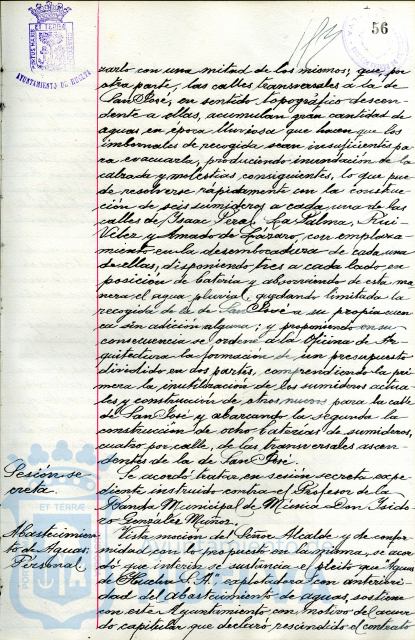 56
AYUNTAMIENTO DE HUELVA
zarlo con una mitad de los mismos; que, por
otra parte, las calles transversales a la de
San José, en sentido topográfico descen-
dente a ellas, acumulan gran cantidad de
aguas en época lluviosa que hacen que los
imbornales de recogida sean insuficientes pa-
ra evacuarla, produciendo inundación de la
calzada y molestias consiguientes, lo que pue-
de resolverse rápidamente con la construc-
ción de seis sumideros a cada una de las
calles de Isaac Peral, La Palma, Rui-
Velez y Amado de Lázaro, con emplaza-
miento en la desembocadura de cada una
de ellas, disponiendo tres a cada lado en
posición de batería y absorviendo de esta ma-
nera el agua pluvial, quedando limitada la
recogida de la de San José a su propia cuen-
ca sin adición alguna; y proponiendo en su
consecuencia se ordene a la Oficina de Ar-
quitectura la formación de un presupuesto
dividido en dos partes, comprendiendo la pri-
mera la inutilización de los sumideros actua-
les y construcción de otros nuevos para la calle
de San José y abarcando la segunda la
construcción de ocho baterías de sumideros,
cuatro por calle, de las transversales ascen-
dentes de la de San José.
Sesión se-
creta.
Se acordó tratar en sesión secreta expe-
diente instruido contra el Profesor de la
Banda Municipal de Música Don Isido-
ro Gonzalez Muñoz.
Abastecimien-
to de Aguas.
Personal
Vista moción del Señor Alcalde y de confor-
midad con lo propuesto en la misma, se acor-
dó que interin se sustancia el pleito que Aguas
de Huelva S.A. explotadora con anteriori-
dad del abastecimiento de aguas, sostiene
con este Ayuntamiento con motivo del acuer-
do capitular que declaró rescindido el contrato